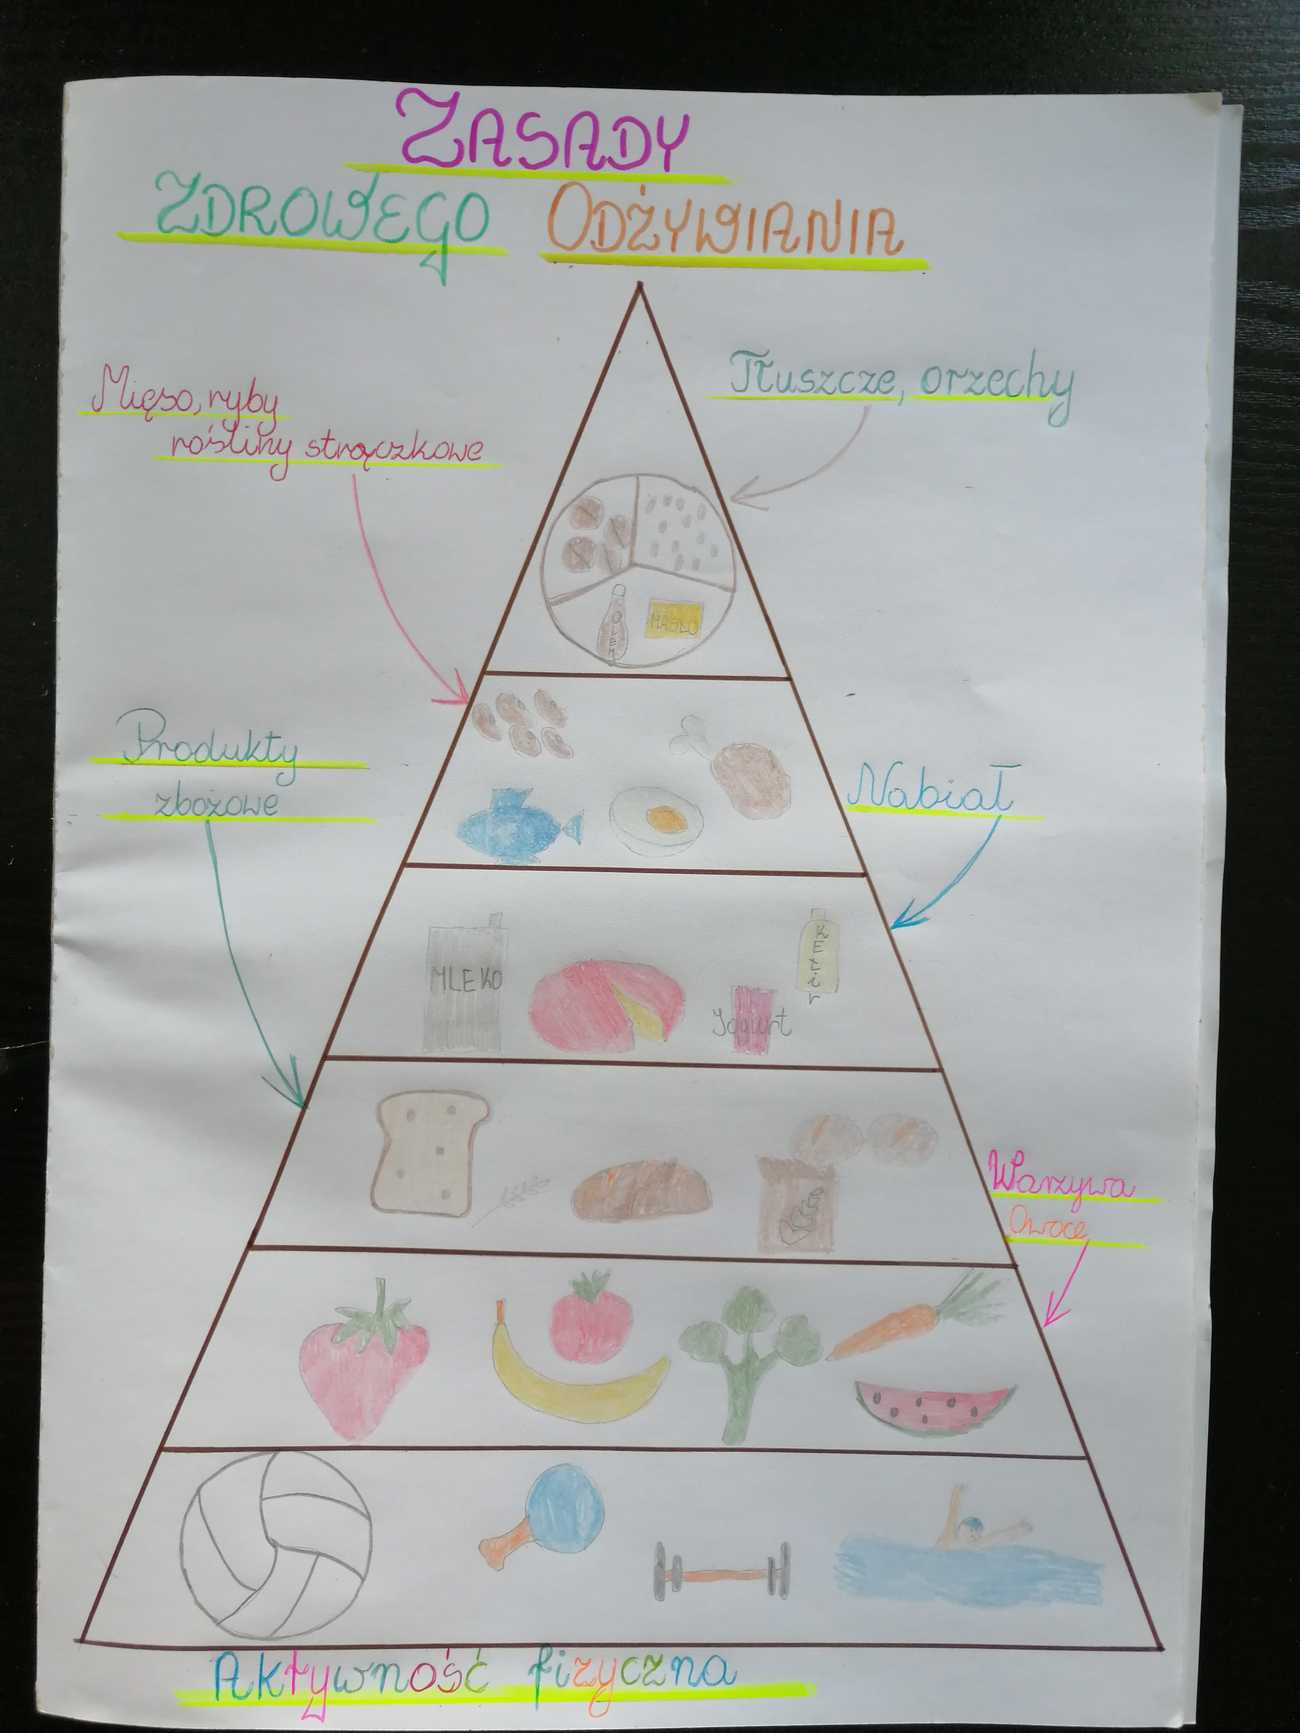 ZASADY
ZDROWEGO ODŻYWIANIA
Tłuszcze, orzechy
Mięso, ryby
rośliny strączkowe
OLEJ
MASŁO
Produkty
zbożowe
Nabiał
MLEKO
Jogurt
KEfir
Warzywa
Owoce
Aktywność fizyczna